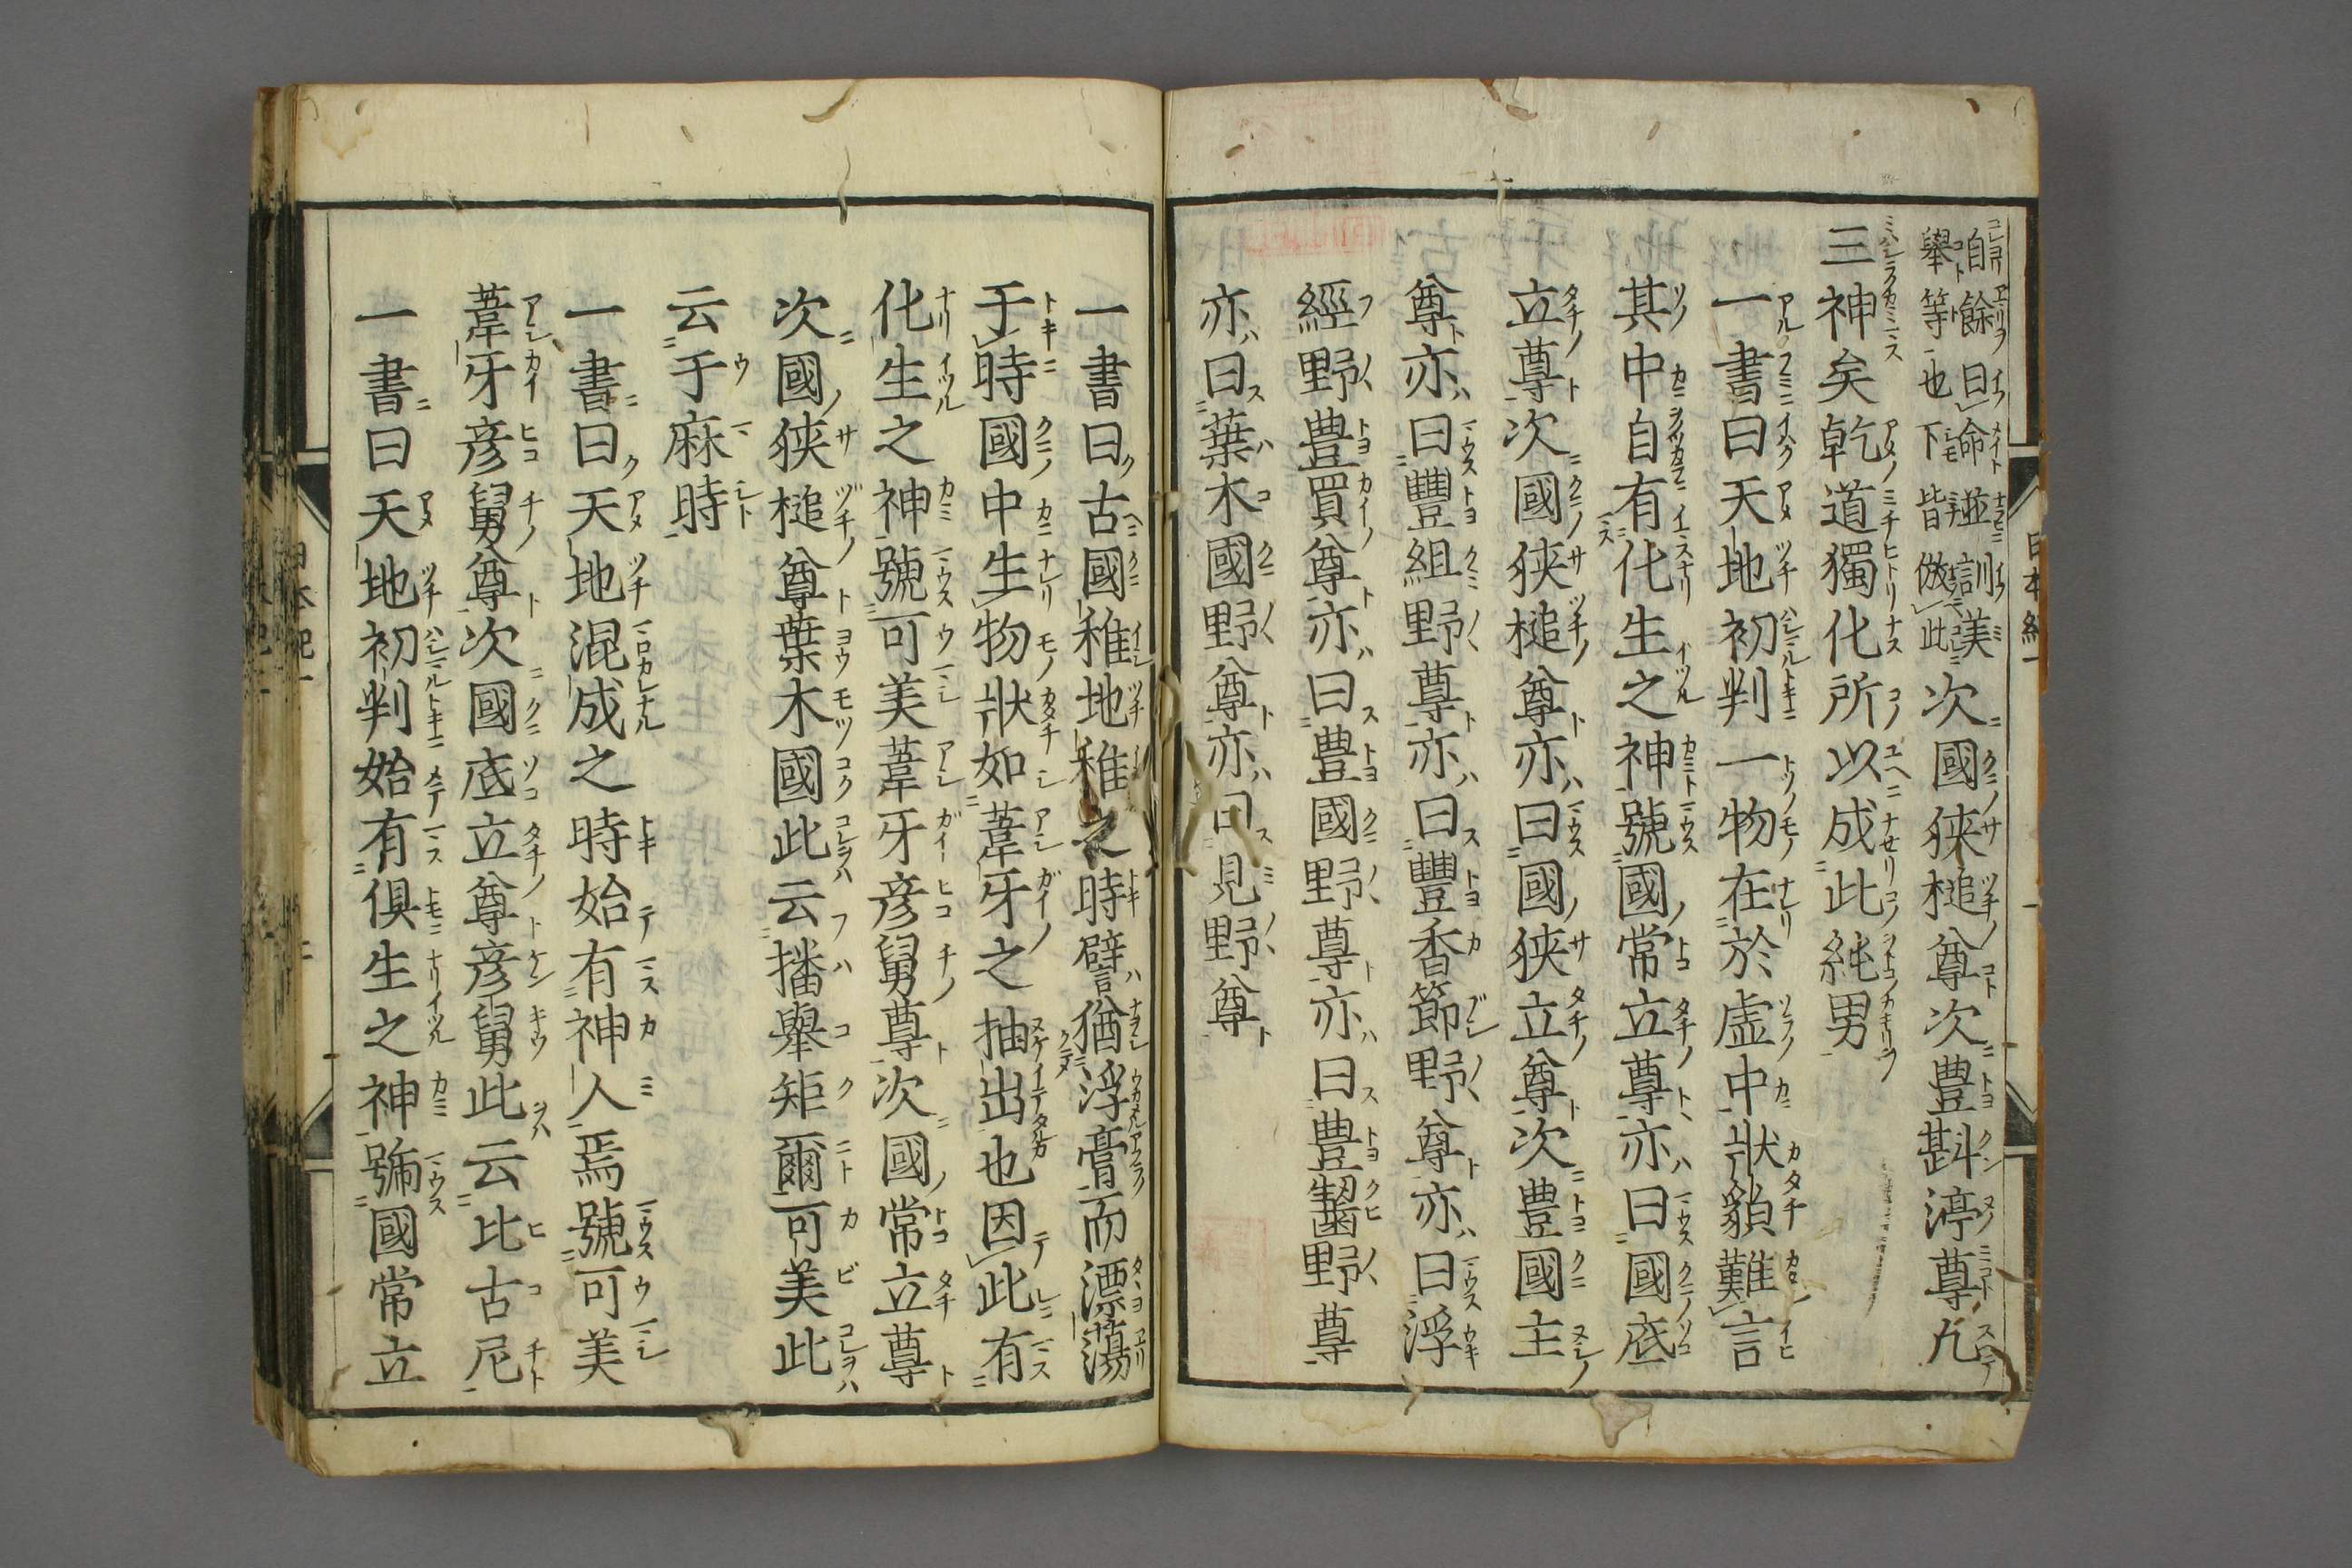 自餘曰命並訓美
擧等也下皆倣此
次國狹槌尊次豊斟渟尊凡
三神矣乾道獨化所以成此純男
一書曰天地初判一物在於虚中狀貌難言
其中自有化生之神號國常立尊亦曰國底
立尊次國狹槌尊亦曰國狹立尊次豊國主
尊亦曰豐組野尊亦曰豐香節野尊亦曰浮
經野豊買尊亦曰豊國野尊亦曰豊齧野尊
亦曰葉木國野尊亦曰見野尊
一書曰古國稚地稚之時譬猶浮膏而漂蕩
于時國中生物狀如葦牙之抽出也因此有
化生之神號可美葦牙彦舅尊次國常立尊
次國狹槌尊葉木國此云播擧矩爾可美此
云于麻時
一書曰天地混成之時始有神人焉號可美
葦牙彦舅尊次國底立尊彦舅此云比古尼
一書曰天地初判始有倶生之神號國常立
日本紀一